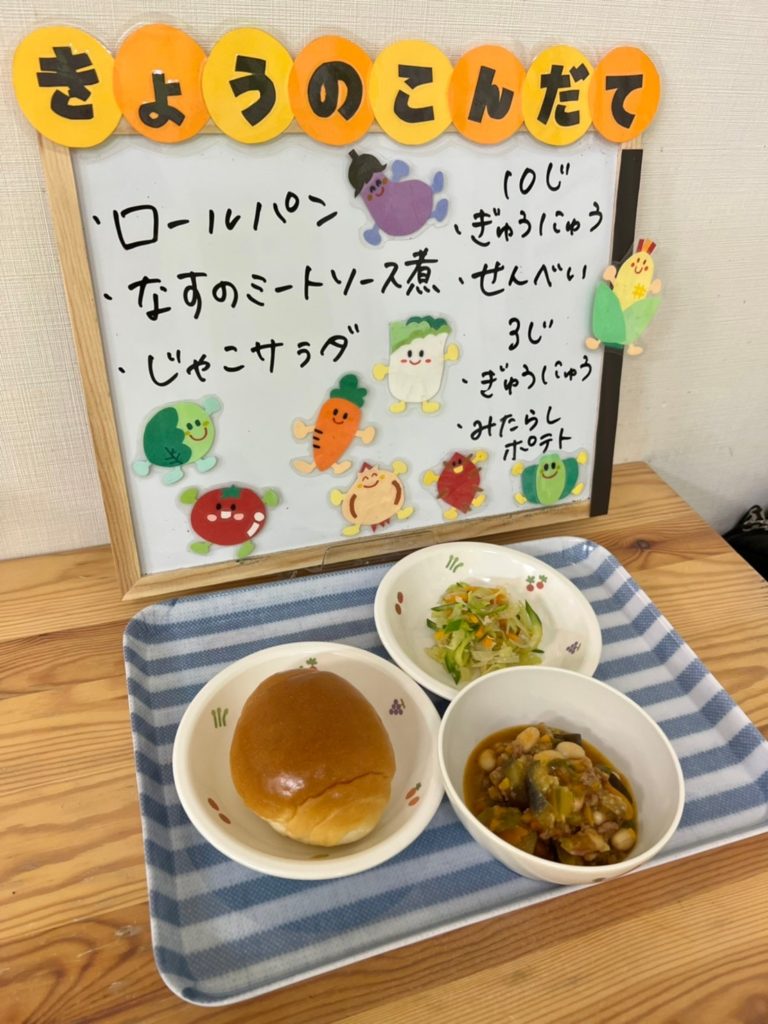 きょうのこんだて
・ロールパン
・なすのミートソース煮
・じゃこサラダ
10じ
・ぎゅうにゅう
・せんべい
3じ
・ぎゅうにゅう
・みたらし
ポテト